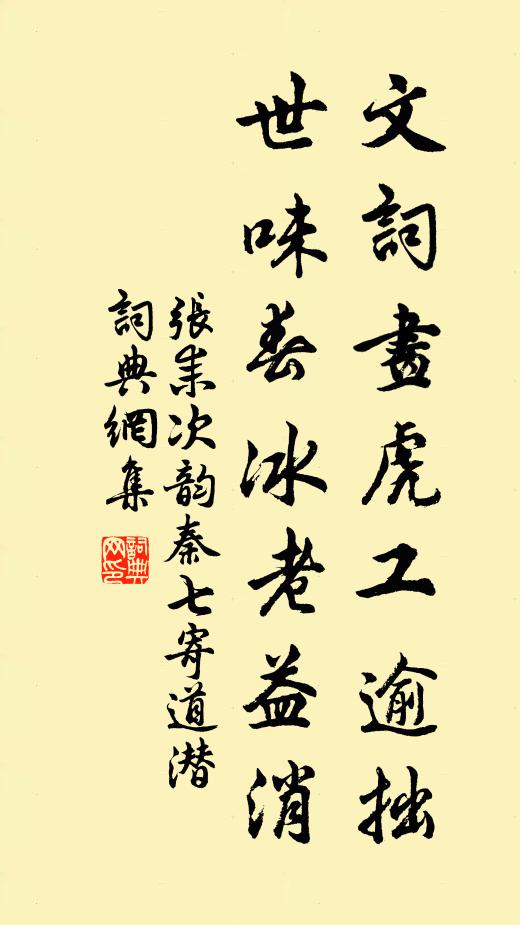 文詞畫虎工逾拙
世味春冰老益消
張耒次韵秦七寄道潛
詞典網集
詞典
网印